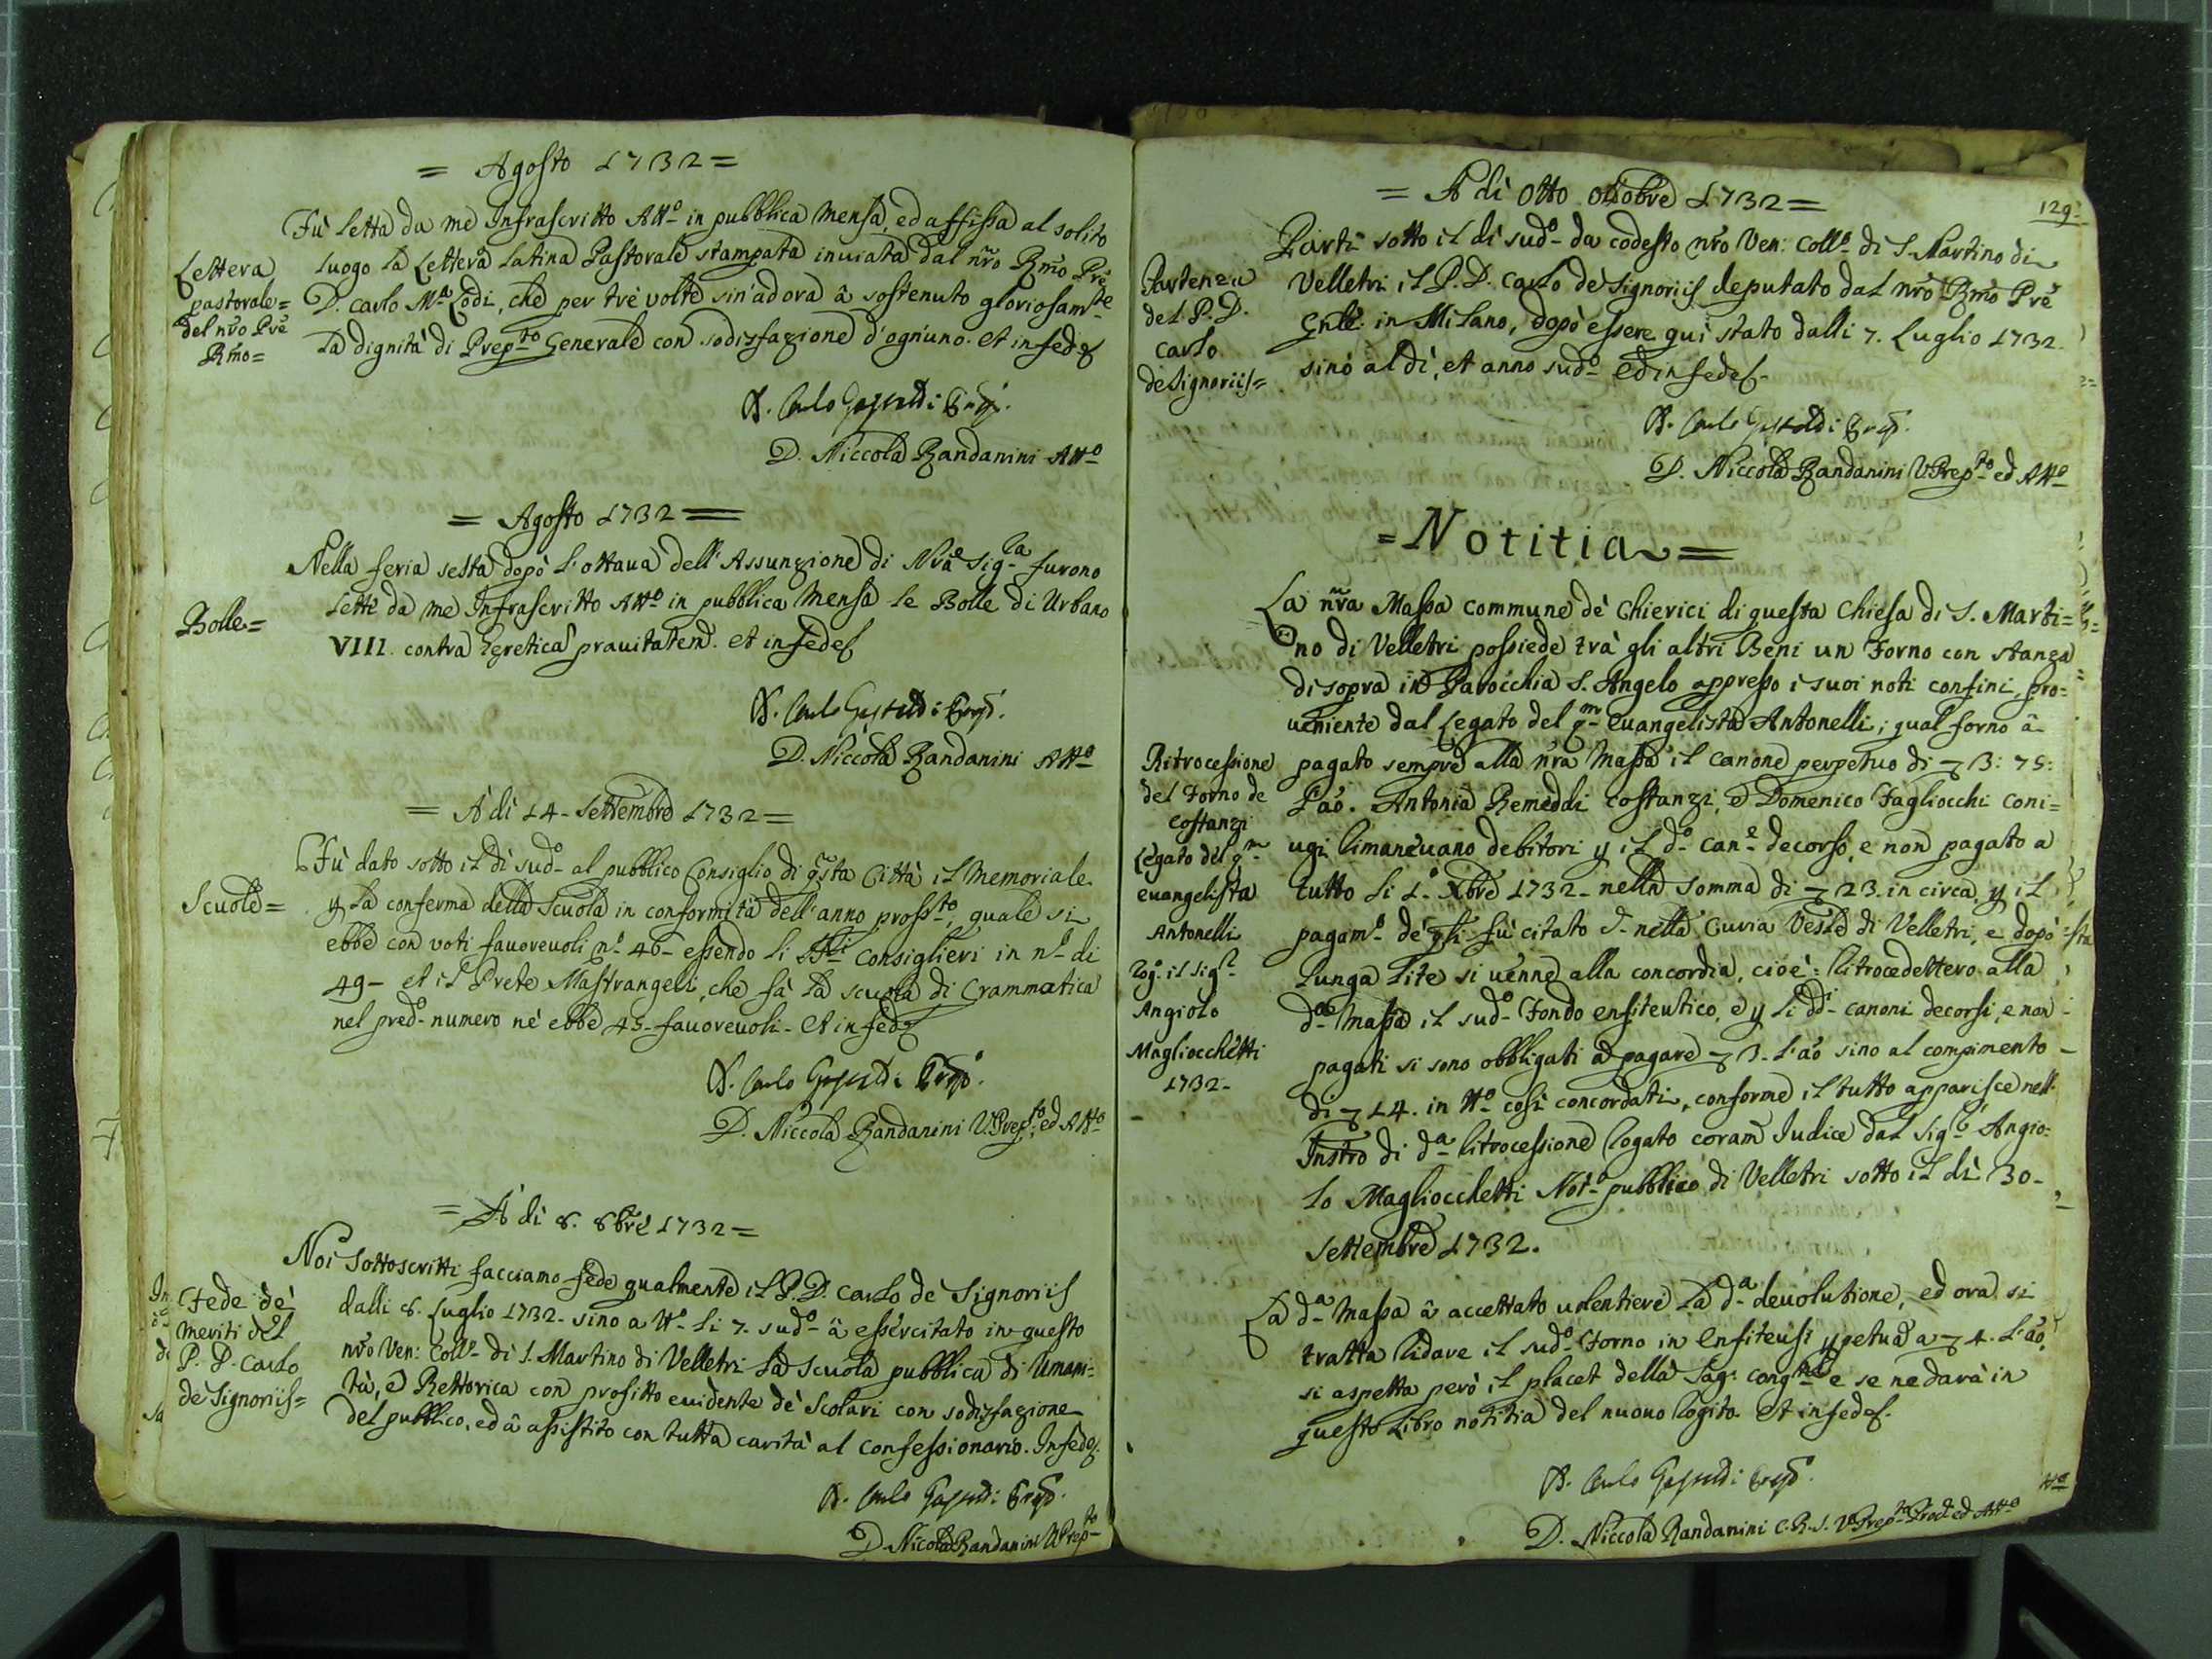 = Agosto 1732 =
Fù letta da me Infrascritto Att.o in pubblica mensa, ed affissa al solito
luogo la Lettera latina Pastorale stampata inviata dal nrõ Rmõ Prẽ
D. Carlo M.a Lodi, che per trè volte sin'ad ora â sostenuto gloriosam.te
la dignità di Prep.to Generale con sodisfazione d'ognuno. et in fede
Lettera
pastorale =
del nrõ Prẽ
Rmõ =
D. Carlo Gastaldi
D. Niccola Randanini Att.o
= Agosto 1732 =
Nella feria sesta dopò l'ottava dell'Assunzione di Nrã Sig.ra furono
lette da me Infrascritto Att.o in pubblica mensa le Bolle di Urbano
VIII. contra heretica pravitatem. et in fede
Bolle =
D. Carlo Gastaldi
D. Niccola Randanini Att.o
= A di 14 - Settembre 1732 =
Fù dato sotto il dì sud.o al pubblico Consiglio di qsta Città il Memoriale
p la conferma della Scuola in conformità dell'anno pross.to, quale si
ebbe con voti favorevoli n.o 46 - essendo li SS.ri Consiglieri in n.o di
49 - et il Prete Mastrangeli, che fà la scuola di Grammatica
nel pred.o numero nè ebbe 45 - favorevoli - Et in fede
Scuole =
D. Carlo Gastaldi
D. Niccola Randanini V.Prep.to, ed Att.o
= A di 8. 8brẽ 1732 =
Noi sottoscritti facciamo fede qualmente il P. D. Carlo de Signoriis
dalli 8. Luglio 1732 - sino a tt.o li 7. sud.o â essercitato in questo
nrõ Ven: Coll.o di S. Martino di Velletri la scuola pubblica di Umani-
tà, e Rettorica con profitto evidente dè Scolari con sodisfazione
del pubblico, ed â assistito con tutta carità al confessionario. In fede
Fede dè
meriti del
P. D. Carlo
de Signoriis =
D. Carlo Gastaldi
D. Nicola Randanini V.Prep.to
129
= A di otto ottobre 1732 =
Partì sotto il dì sud.o da codesto nrõ Ven: Coll.o di S. Martino di
Velletri il P. D. Carlo de Signoriis deputato dal nrõ Rmõ Prẽ
Gnle: in Milano, dopò essere quì stato dalli 7. Luglio 1732
sino al dì, et anno sud.o ed in fede
Partenza
del P. D.
Carlo
de Signoriis =
D. Carlo Gastaldi
D. Niccola Randanini V.Prep.to ed Att.o
= Notitia =
La nrã Massa commune dè Chierici di questa Chiesa di S. Marti=
no di Velletri possiede trà gli altri Beni un Forno con stanza
di sopra in Parocchia S. Angelo appresso i suoi noti confini, pro=
veniente dal Legato del q.m Evangelista Antonelli; qual forno â
pagato sempre alla nrã Massa il canone perpetuo di 3: 75:
l'aõ. Antonia Remeddi Costanzi, e Domenico Fagliocchi coni=
ugi rimanevano debitori p il d.o can.e decorso, e non pagato a
tutto li 1.o Xbre 1732 - nella somma di 23. in circa, p il
pagam.o dè qli fù citato nella Curia Vesle di Velletri, e dopò
lunga lite si venne alla concordia, cioè: ritrocedettero alla
d.a Massa il sud.o Fondo enfiteutico, e p li dd.i canoni decorsi, e non
pagati si sono obbligati a pagare 3 - l'aõ sino al compimento
di 14. in tt.o così concordati, conforme il tutto apparisce nell'
Instrõ di d.a ritrocessione rogato coram Iudice dal Sig.r Angio=
lo Magliocchetti Not.o pubblico di Velletri sotto il dì 30 -
Settembre 1732.
Ritrocessione
del Forno de
Costanzi
Legato del q.m
evangelista
Antonelli
Rog.o il Sig.r
Angiolo
Magliocchetti
1732 -
La d.a Massa â accettato volentieri la d.a devolutione, ed ora si
tratta ridare il sud.o Forno in Enfiteusi ppetua a 4. l'aõ,
si aspetta però il placet della Sag: Cong.ne e se ne darà in
questo Libro notitia del nuovo rogito. Et in fede
D. Carlo Gastaldi
D. Niccola Randanini C. R. S. V.Prep.to Proc.e ed Att.o